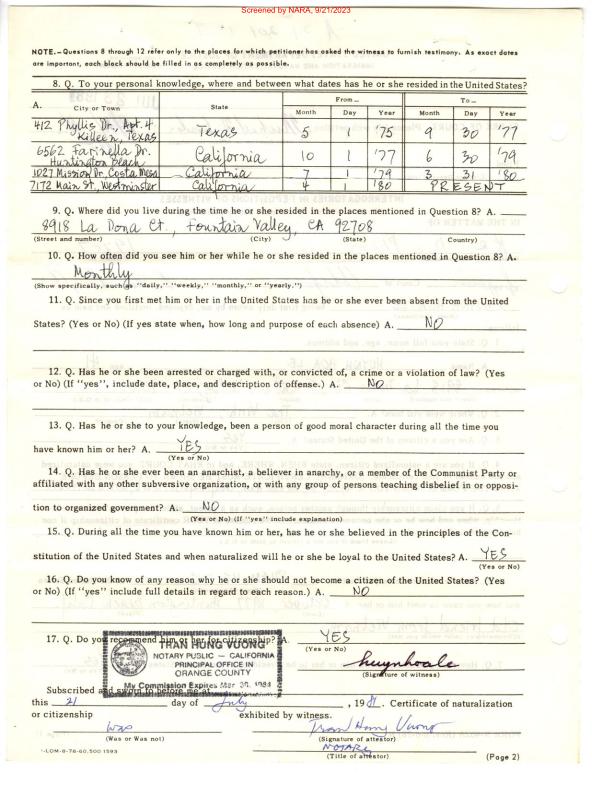 Screened by NARA, 9/21/2023
NOTE.—Questions 8 through 12 refer only to the places for which petitioner has asked the witness to furnish testimony. As exact dates
are important, each block should be filled in as completely as possible.
8. Q. To your personal knowledge, where and between what dates has he or she resided in the United States?
A. City or Town State From— To—
Month Day Year Month Day Year
412 Phyllis Dr., Apt. 4
Killeen, Texas Texas 5 1 '75 9 30 '77
6562 Farinella Dr.
Huntington Beach California 10 1 '77 6 30 '79
1027 Mission Dr, Costa Mesa California 7 1 '79 3 31 '80
7172 Main St, Westminster California 4 1 '80 PRESENT
9. Q. Where did you live during the time he or she resided in the places mentioned in Question 8? A.
8918 La Dona Ct, Fountain Valley, CA 92708
(Street and number) (City) (State) Country)
10. Q. How often did you see him or her while he or she resided in the places mentioned in Question 8? A.
Monthly
(Show specifically, such as "daily," "weekly," "monthly," or "yearly.")
11. Q. Since you first met him or her in the United States has he or she ever been absent from the United
States? (Yes or No) (If yes state when, how long and purpose of each absence) A. NO
12. Q. Has he or she been arrested or charged with, or convicted of, a crime or a violation of law? (Yes
or No) (If "yes", include date, place, and description of offense.) A. NO
13. Q. Has he or she to your knowledge, been a person of good moral character during all the time you
have known him or her? A. YES
(Yes or No)
14. Q. Has he or she ever been an anarchist, a believer in anarchy, or a member of the Communist Party or
affiliated with any other subversive organization, or with any group of persons teaching disbelief in or opposi-
tion to organized government? A. NO
(Yes or No) (If "yes" include explanation)
15. Q. During all the time you have known him or her, has he or she believed in the principles of the Con-
stitution of the United States and when naturalized will he or she be loyal to the United States? A. YES
(Yes or No)
16. Q. Do you know of any reason why he or she should not become a citizen of the United States? (Yes
or No) (If "yes" include full details in regard to each reason.) A. NO
17. Q. Do you recommend him or her for citizenship? A. YES
(Yes or No)
TRAN HUNG VUONG
NOTARY PUBLIC — CALIFORNIA
PRINCIPAL OFFICE IN
ORANGE COUNTY
My Commission Expires Mar 30, 1984
huynhoale
(Signature of witness)
Subscribed and sworn to before me at
this 21 day of July, 1981. Certificate of naturalization
or citizenship was exhibited by witness. Tran Hung Vuong
(Was or Was not) (Signature of attestor)
NOTARY
(Title of attestor)
(Page 2)